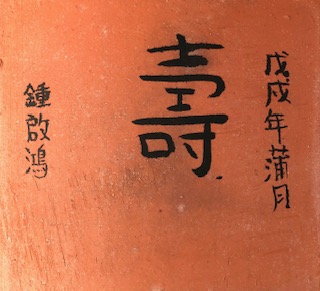 戊戌年蒲月
壽
鍾啟鴻